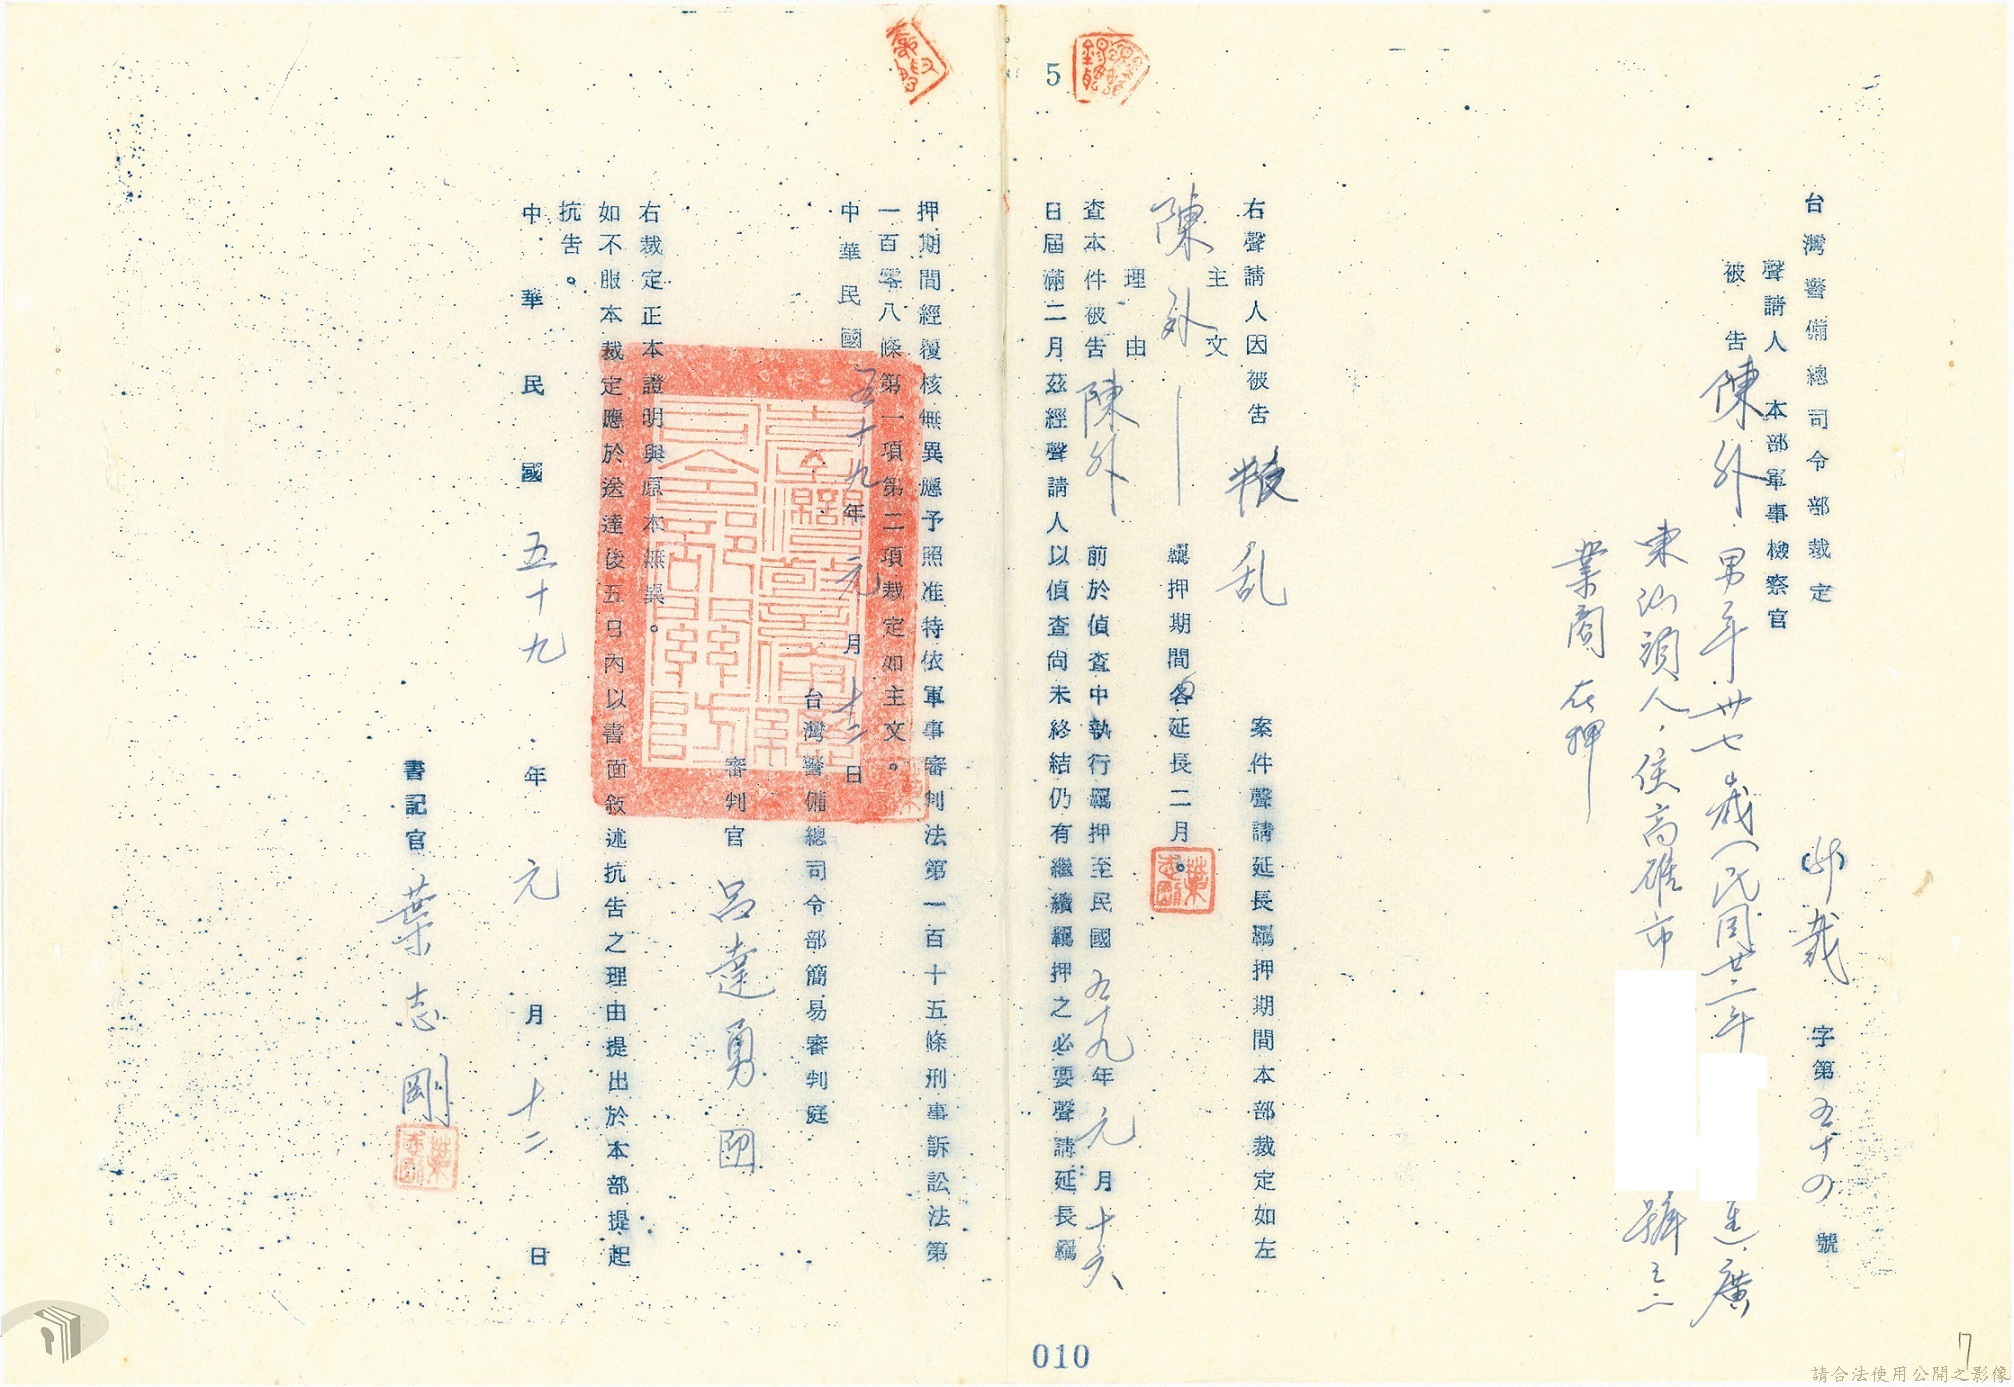 台灣警備總司令部裁定
裁 字第五十四號
聲請人 本部軍事檢察官
被告 陳外 男 年卅七歲(民国廿二年
生),廣
東汕頭人,住高雄市
號之二
業商 在押
右聲請人因被告 叛乱 案件聲請延長羈押期間本部裁定如左
主文
陳外 羈押期間 延長二月。
理由
查本件被告 陳外 前於偵查中執行羈押至民國五十九年元月十六
日屆滿二月茲經聲請人以偵查尚未終結仍有繼續羈押之必要聲請延長羈
5
010
押期間經覆核無異應予照准特依軍事審判法第一百十五條刑事訴訟法第
一百零八條第一項第二項裁定如主文。
中華民國五十九年元月十二日
台灣警備總司令部簡易審判庭
審判官 呂達勇
右裁定正本證明與原本無異。
如不服本裁定應於送達後五日內以書面敘述抗告之理由提出於本部提起
抗告。
中華民國五十九年元月十二日
書記官 葉志剛
葉志剛
7
請合法使用公開之影像